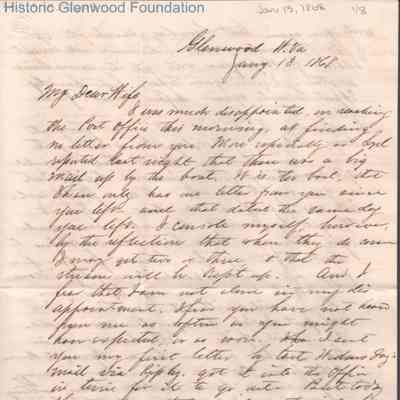 Historic Glenwood Foundation
Jan 13, 1868 1/8
Glenwood W.Va
Jany 13. 1868
My Dear Wife,
I was much disappointed, in reaching
the Post Office this morning, at finding
no letter from you. More especially as
reported last night that there was a big
mail up by the boat. It is too bad, that
I have only has one letter from you since
you left and that dated the same day
you left. I console myself, however,
by the reflection that when they do come
I may get two or three, & that the
stream will be kept up. And I
fear that I am not alone in my dis
appointment. I fear you have not heard
from me as often as you might
have expected, or as soon. I sent
you my first letter by last Wednesday's
mail via Ripley, got it into the Office
in time for it to go out. But today